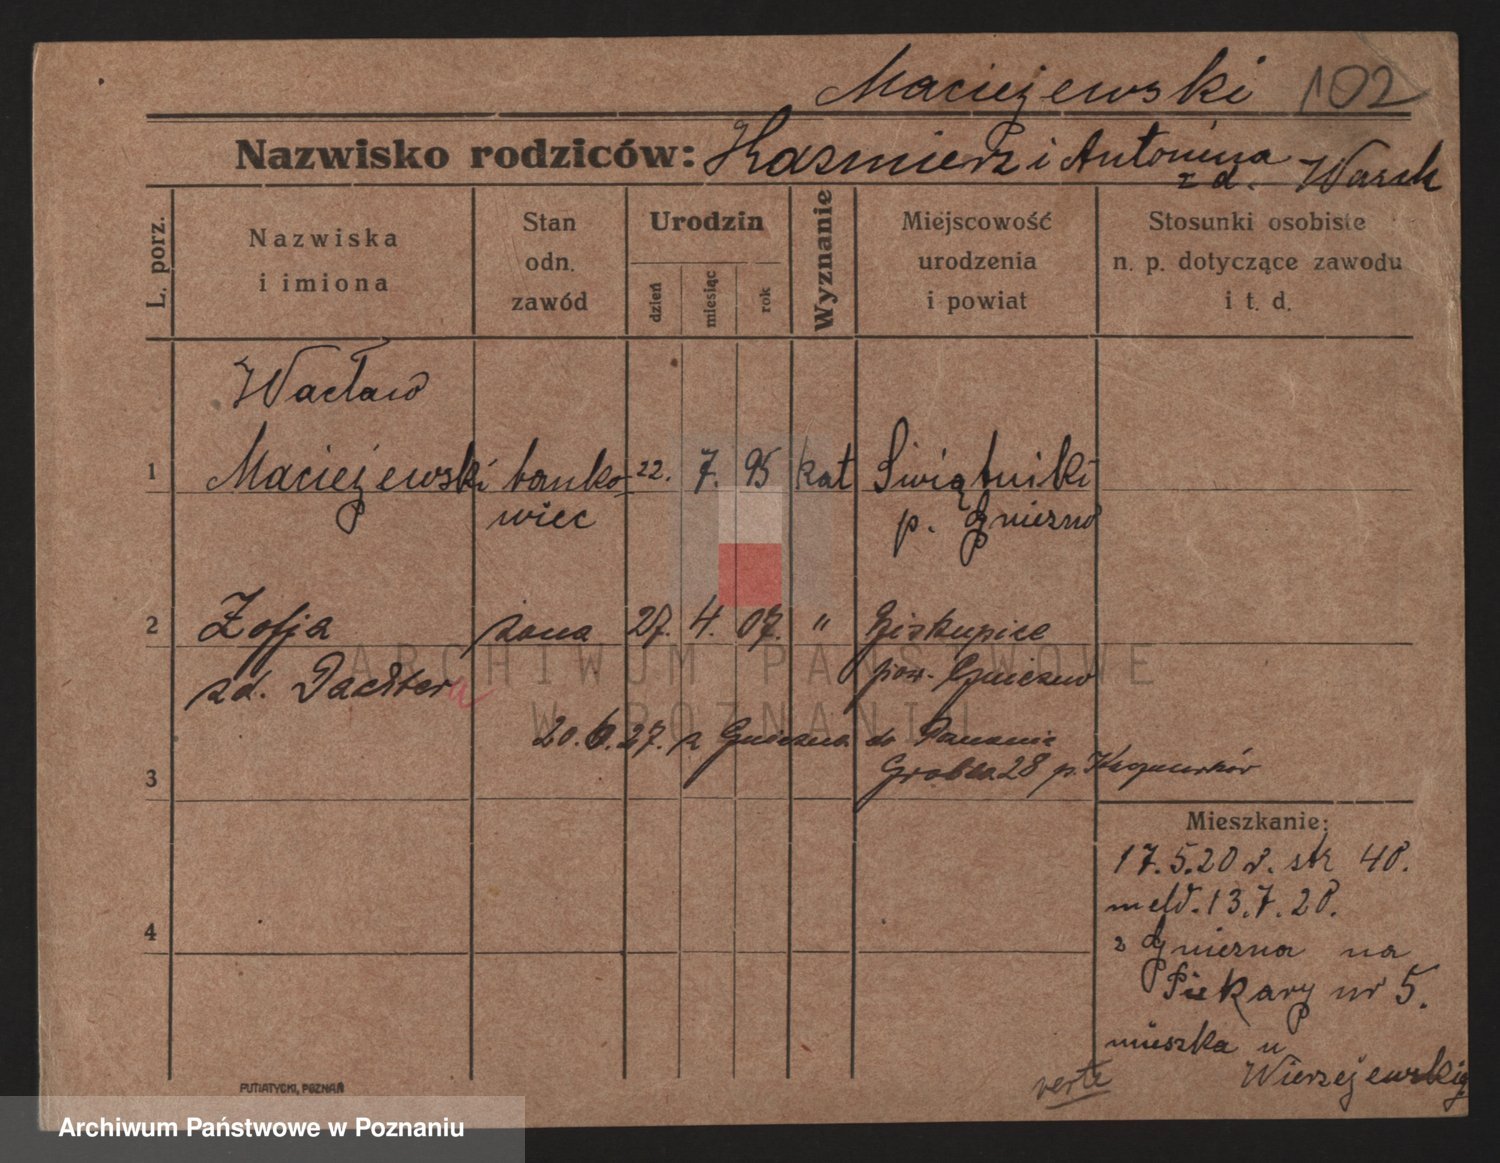 Maciejewski 102
Nazwisko rodziców: Kasmierz i Antonina
z d. Warch
L. porz.
Nazwiska
i imiona
Stan
odn.
zawód
Urodzin
dzień
miesiąc
rok
Wyznanie
Miejscowość
urodzenia
i powiat
Stosunki osobiste
n. p. dotyczące zawodu
i t. d.
Wacław
1 Maciejewski banko- 22. 7. 95 kat Swiątniki
wiec p. Gniezno
2 Zofja żona 27. 4. 07. " Biskupice
zd. Dachtera pow. Gniezno
ARCHIWUM PAŃSTWOWE
W POZNANIU
20.6.27. z Gniezna do Poznania
3 Grobla 28 p.
Mieszkanie:
17.5.20 r. str 40.
meld. 13.7.20.
4
z Gniezna na
Piekary nr 5.
mieszka u
Wierzejewskiej
verte
PUTIATYCKI, POZNAŃ
Archiwum Państwowe w Poznaniu